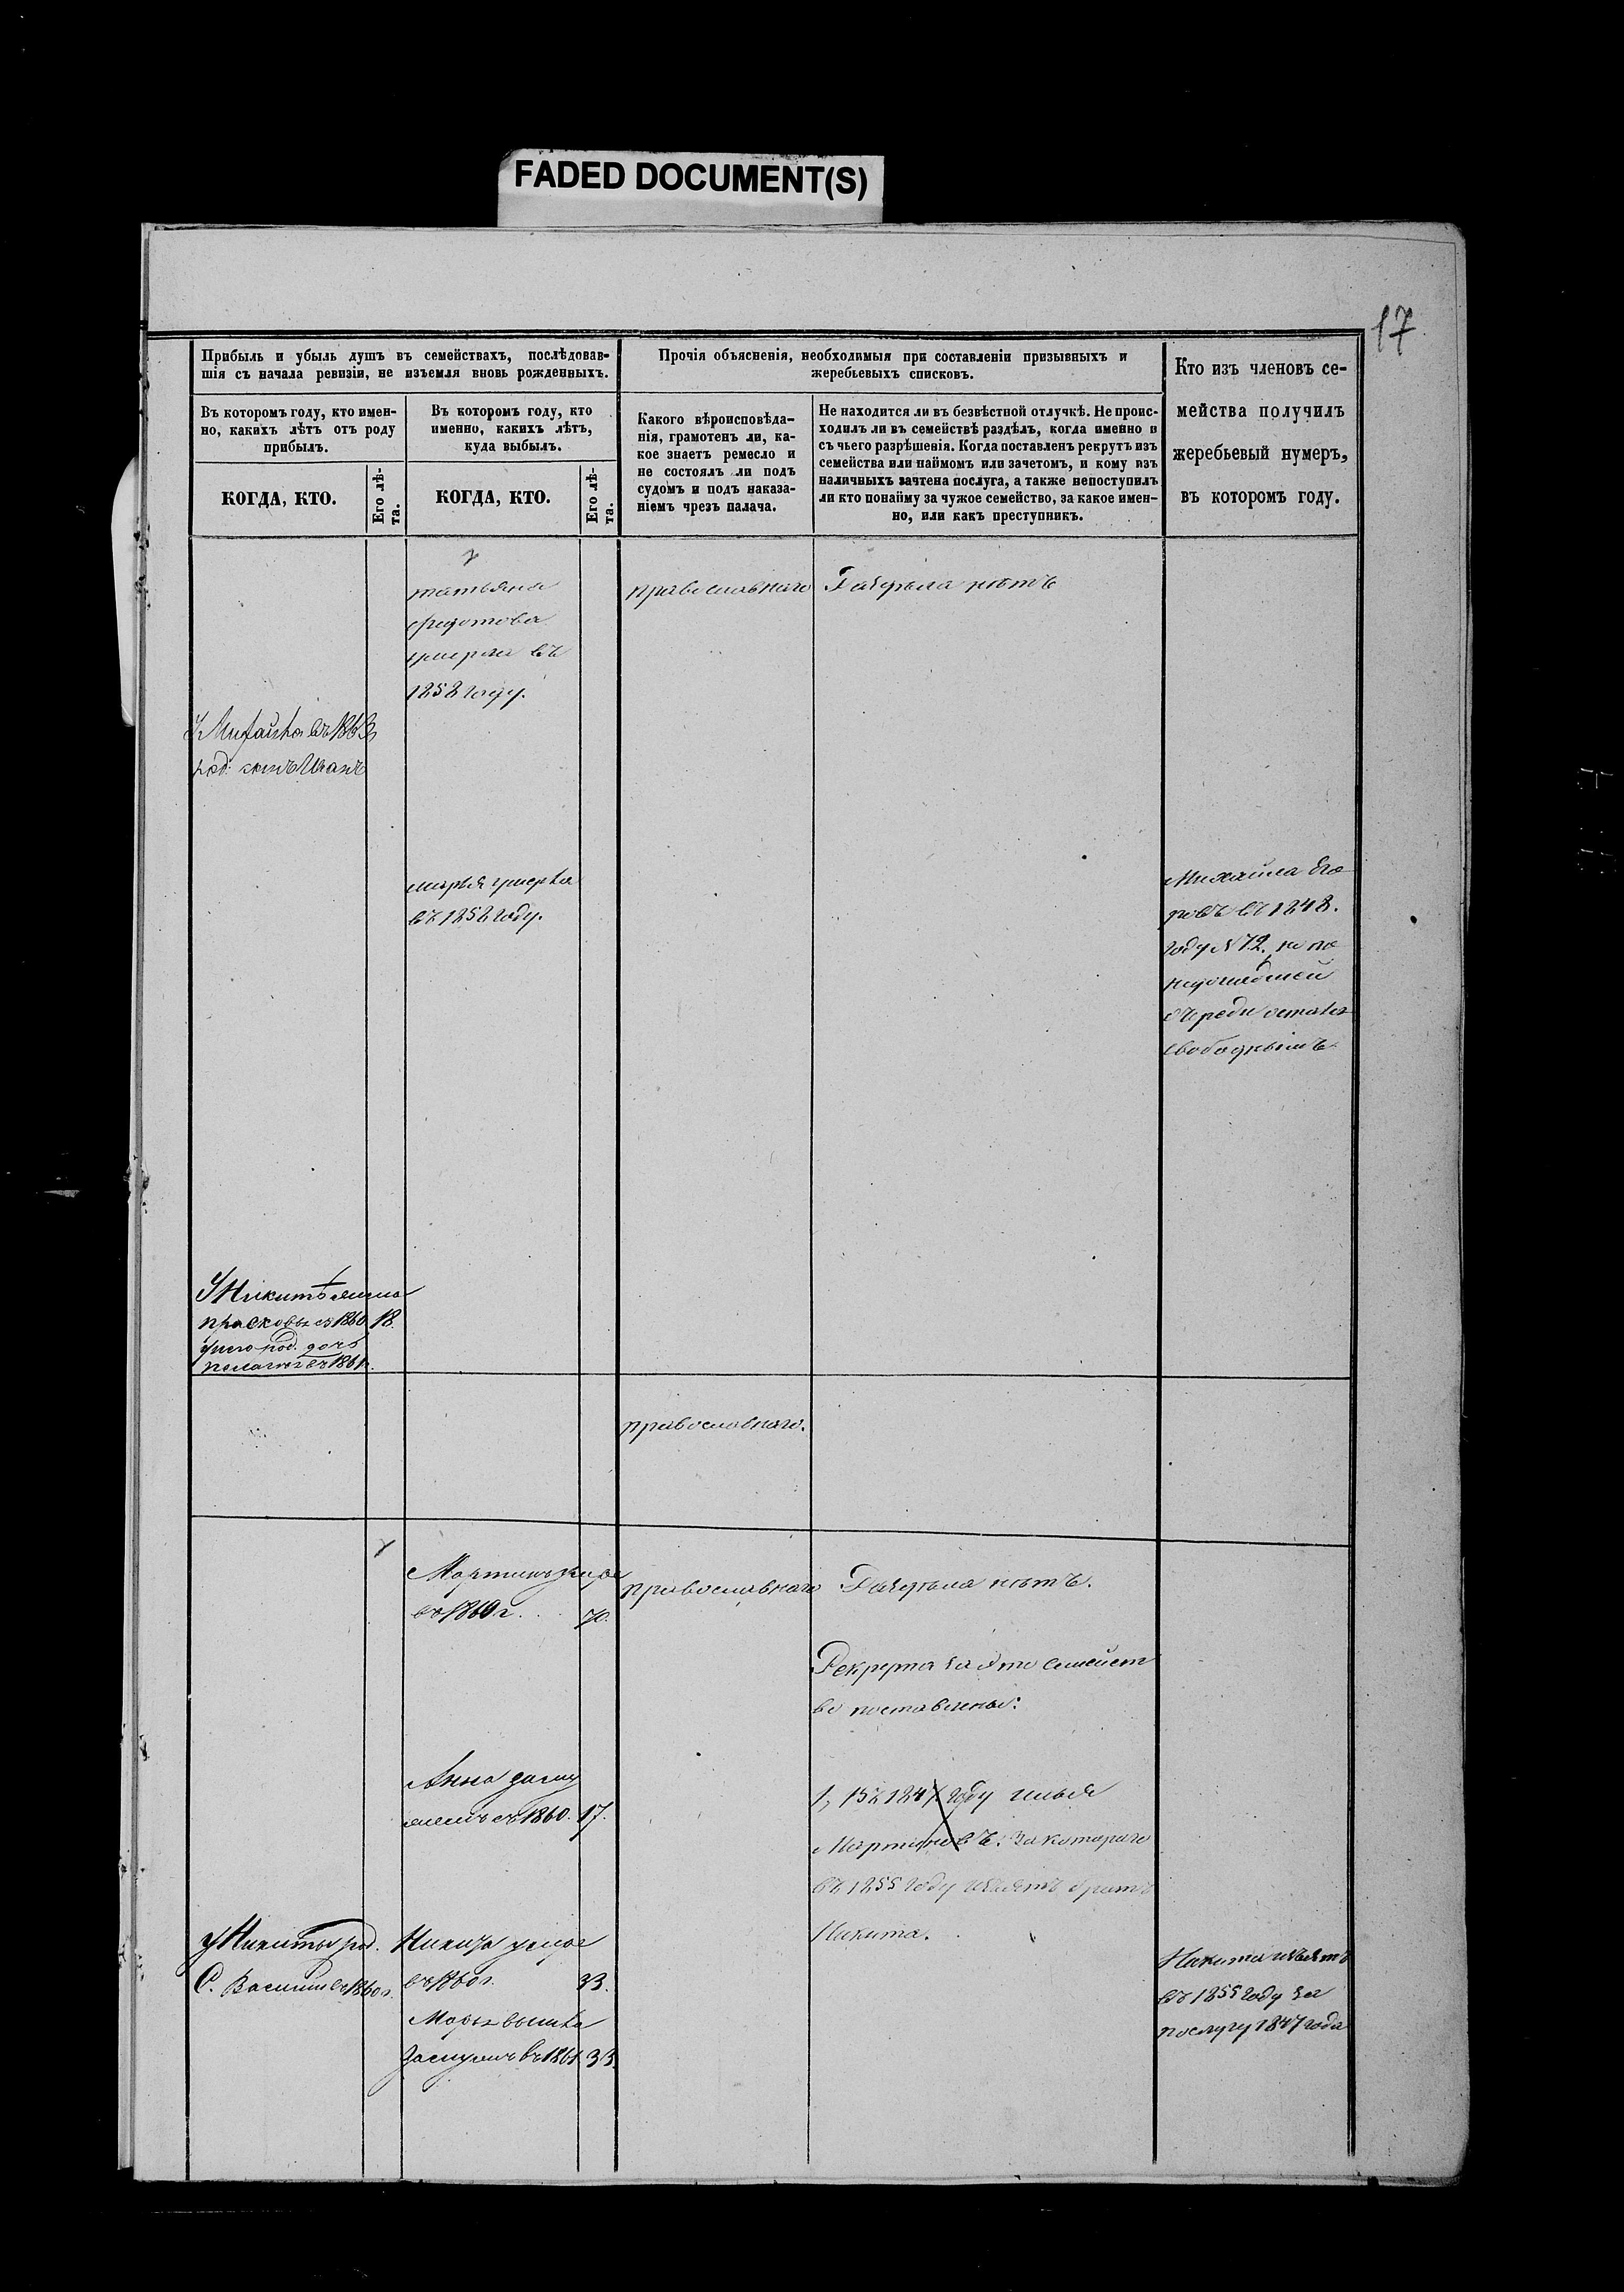 FADED DOCUMENT(S)
17
Прибыль и убыль душъ въ семействахъ, послѣдовав-
шія съ начала ревизіи, не изъемля вновь рожденныхъ.
Въ которомъ году, кто имен-
но, какихъ лѣтъ отъ роду
прибылъ.
КОГДА, КТО.
Его лѣ-
та.
Въ которомъ году, кто
именно, какихъ лѣтъ,
куда выбылъ.
КОГДА, КТО.
Его лѣ-
та.
Прочія объясненія, необходимыя при составленіи призывныхъ и
жеребьевыхъ списковъ.
Какого вѣроисповѣда-
нія, грамотенъ ли, ка-
кое знаетъ ремесло и
не состоялъ ли подъ
судомъ и подъ наказа-
ніемъ чрезъ палача.
Не находится ли въ безвѣстной отлучкѣ. Не проис-
ходилъ ли въ семействѣ раздѣлъ, когда именно и
съ чьего разрѣшенія. Когда поставленъ рекрутъ изъ
семейства или наймомъ или зачетомъ, и кому изъ
наличныхъ зачтена послуга, а также непоступилъ
ли кто понайму за чужое семейство, за какое имен-
но, или какъ преступникъ.
Кто изъ членовъ се-
мейства получилъ
жеребьевый нумеръ,
въ которомъ году.
татьяна
федотова
умерла въ
1858 году.
православнаго
Раздѣла нѣтъ
У Михайла въ 1863
род. сынъ Иванъ
марья умерла
въ 1858 году.
Михайла Его
ровъ въ 1848.
году N 72, но по
недошедшей
очреди остался
свободнымъ
У Никиты жена
прасковья съ 1860 18.
у него род. дочь
пелагея въ 1861 г.
православнаго.
Мартинъ умре
въ 1860 г. 70.
православнаго
Раздѣла нѣтъ.
Рекрута за это семейст
во поставлены:
Анна замуж
съ 1860. 17.
1, въ 1847 году илья
Мартиновъ. За котораго
въ 1855 году изъятъ братъ
Никита.
У Никиты род.
С. Василій въ 1860 г.
Никита умре
въ 1860 г. 33.
Марья вышла
замужъ въ 1861 33.
Никита изъятъ
въ 1855 году за
послугу 1847 года